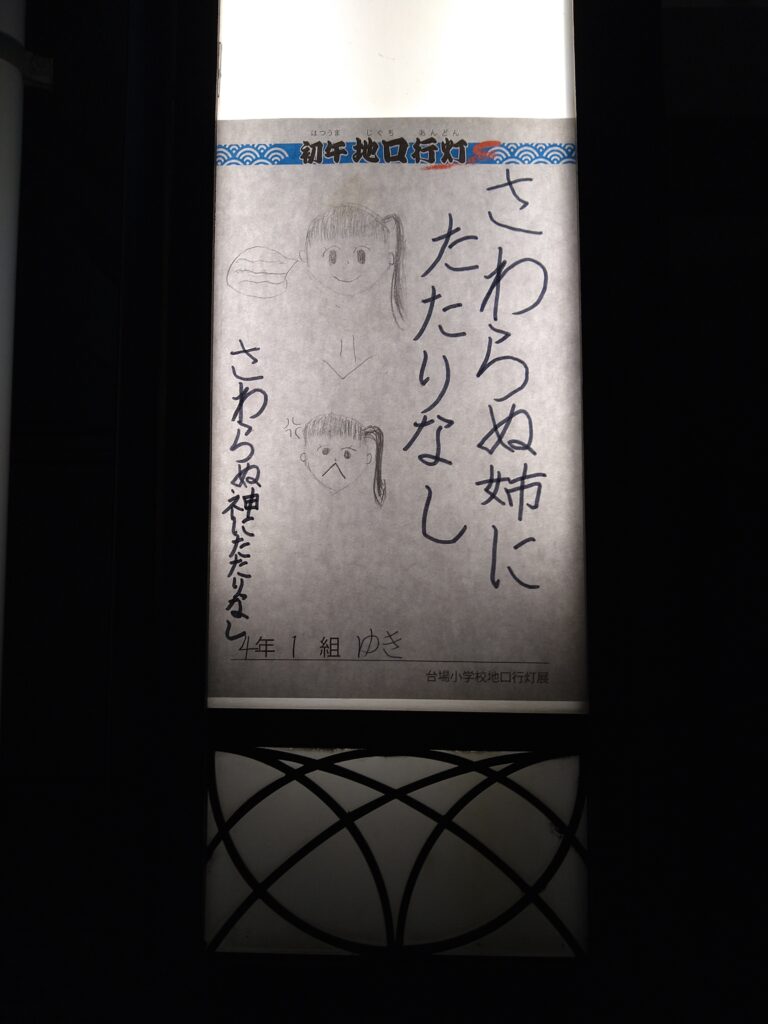 はつうま じぐち あんどん
初午地口行灯
さわらぬ姉に
たたりなし
さわらぬ神にたたりなし
4年 1 組 ゆき
台場小学校地口行灯展